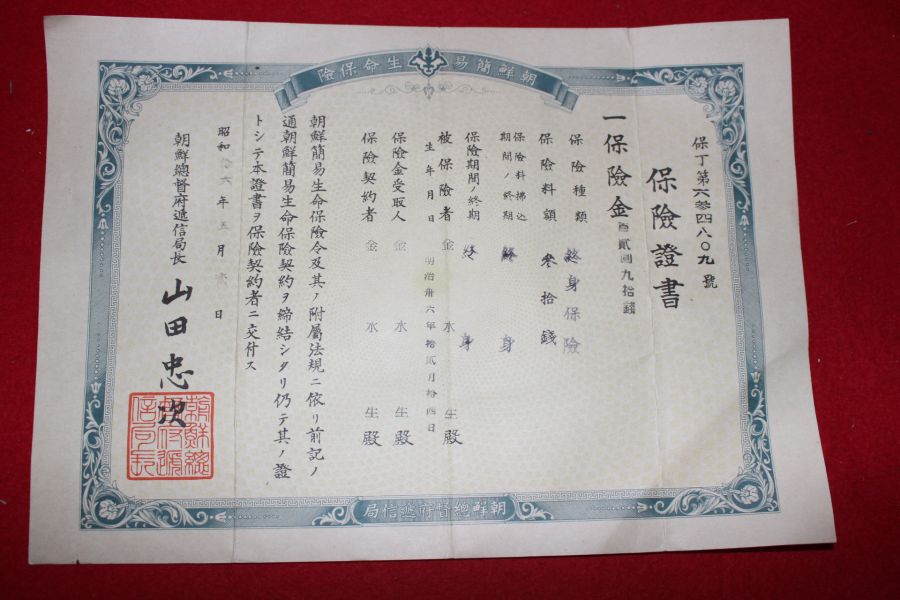 朝鮮簡易生命保險
保丁第六参四八〇九號
保險證書
一保險金壹貳圓九拾錢
保險種類 終身保險
保險料額 參拾錢
保險料拂込期間ノ終期 終身
保險期間ノ終期 終身
被保險者 金水生殿
生年月日 明治卅六年拾貳月拾四日
保險金受取人 金水生殿
保險契約者 金水生殿
朝鮮簡易生命保險令及其ノ附屬法規ニ依リ前記ノ
通朝鮮簡易生命保險契約ヲ締結シタリ仍テ其ノ證
トシテ本證書ヲ保險契約者ニ交付ス
昭和拾六年五月 日
朝鮮總督府遞信局長 山田忠次
朝鮮總督府遞信局長
朝鮮總督府遞信局